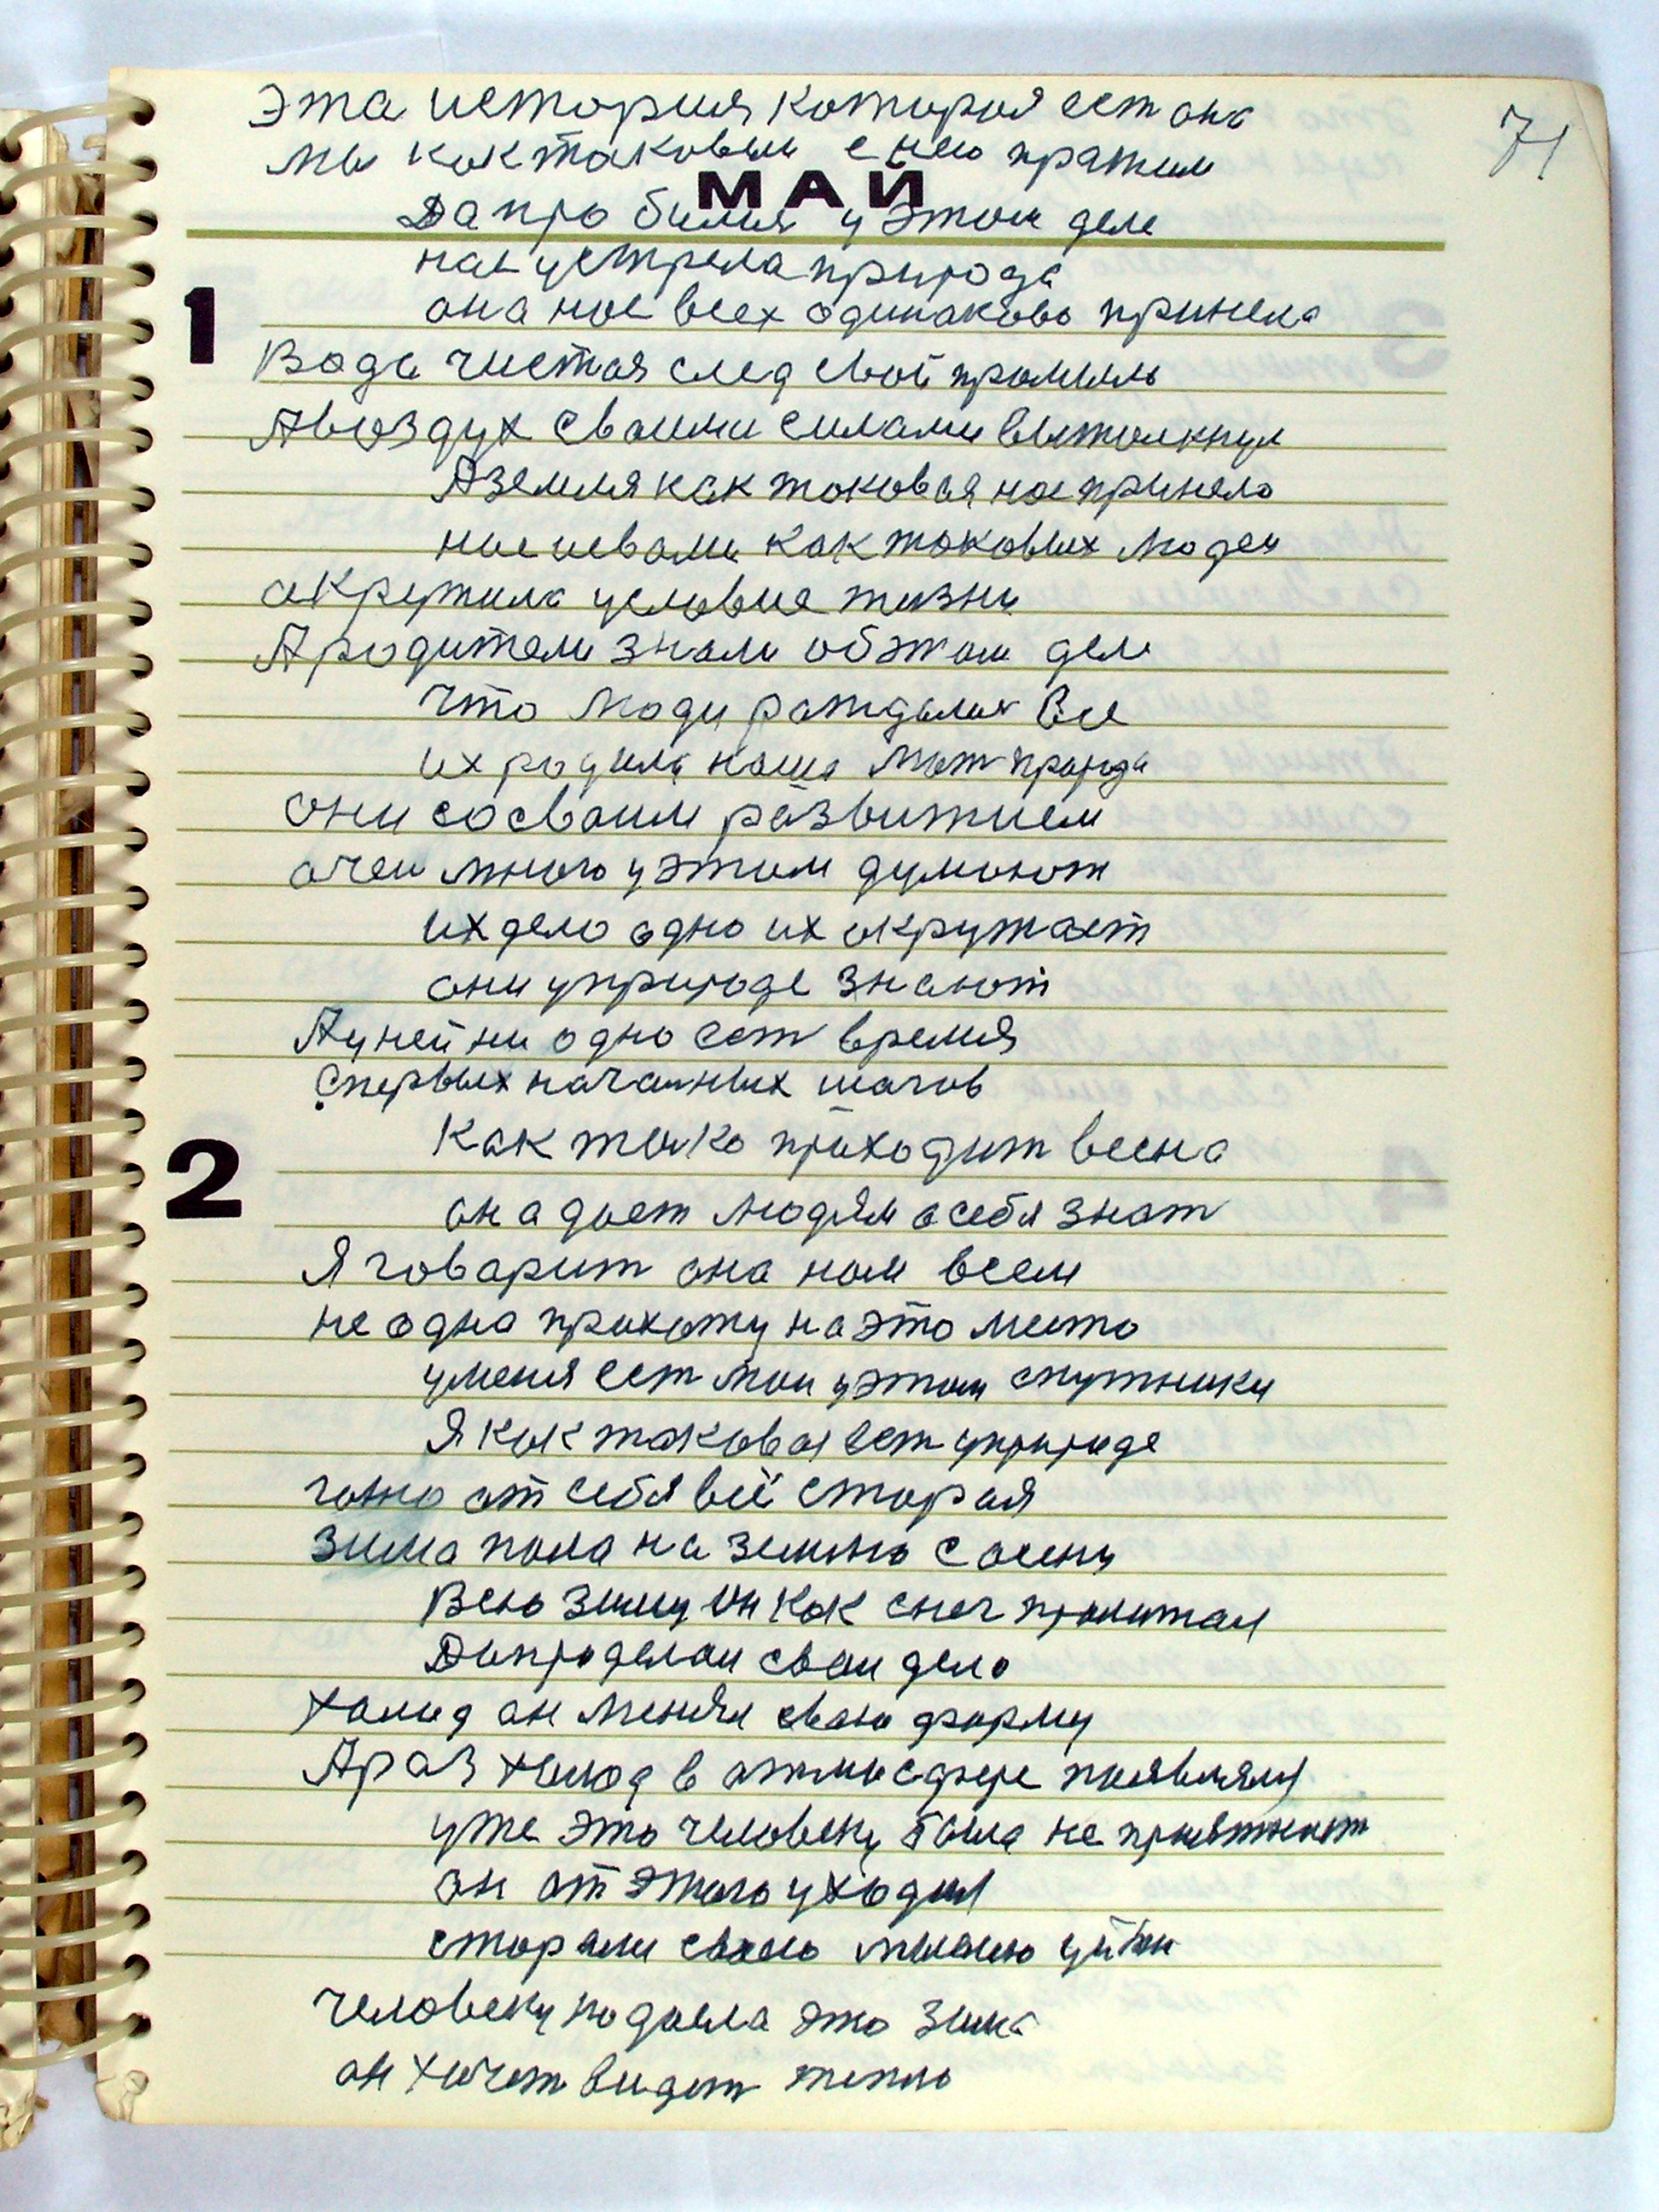 71
Эта история которая ест она
мы как таковыи с нею пражили
МАЙ
Да про билия у этом деле
нас устрела природа
1
она нас всех одинаково принела
Вода чистая след свой промыль
А воздух своими силами вытолкнул
А земля как таковая нас принела
нас иевами как таковых людеи
акружила условие жизни
А родители знали об этом деле
что люди раждалис все
их родила наша мат природа
они со своим развитием
очен много у этом думают
их дело одно их окружает
они у природе знают
А у ней ни одно ест время
с первых началных шагов
2
Как толко приходит весна
она дает людям о себя знат
Я говорит она нам всем
не одна прихожу на это место
у меня ест мои у этом спутники
Я как таковая ест у природе
гоню от себя всё старая
зима пала на землю с осени
Всю зиму он как снег пролитал
Да проделал свои дела
Холод он менял свою форму
А раз холод в атмосфере появлялся
уже это человеку была не приятност
он от этого уходил
старался своею мыслю уйти
человеку надоела эта зима
он хочет видет тепло